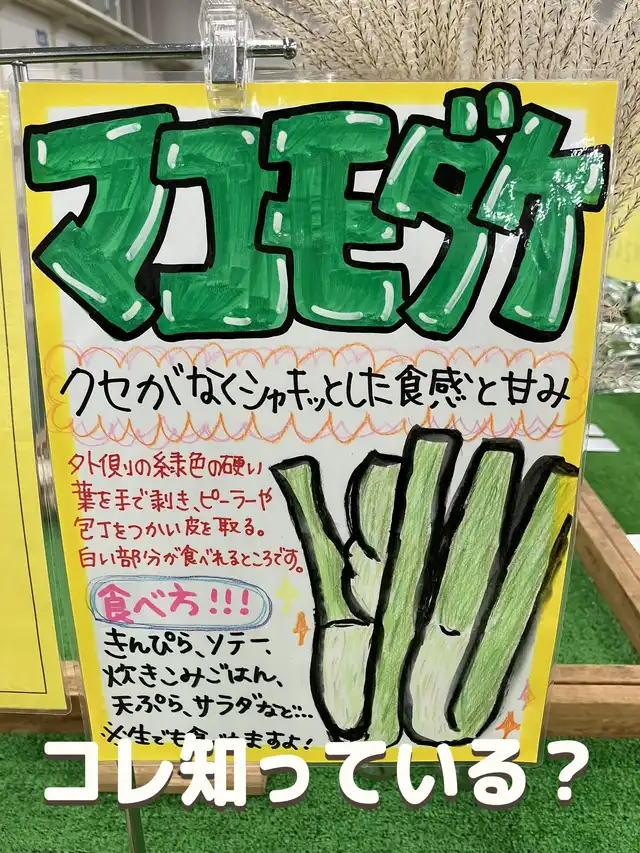 マコモダケ
クセがなくシャキッとした食感と甘み
外側の緑色の硬い
葉を手で剥き、ピーラーや
包丁をつかい皮を取る。
白い部分が食べれるところです。
食べ方!!!
きんぴら、ソテー、
炊きこみごはん、
天ぷら、サラダなど…
※生でも食べれますよ!
コレ知っている？